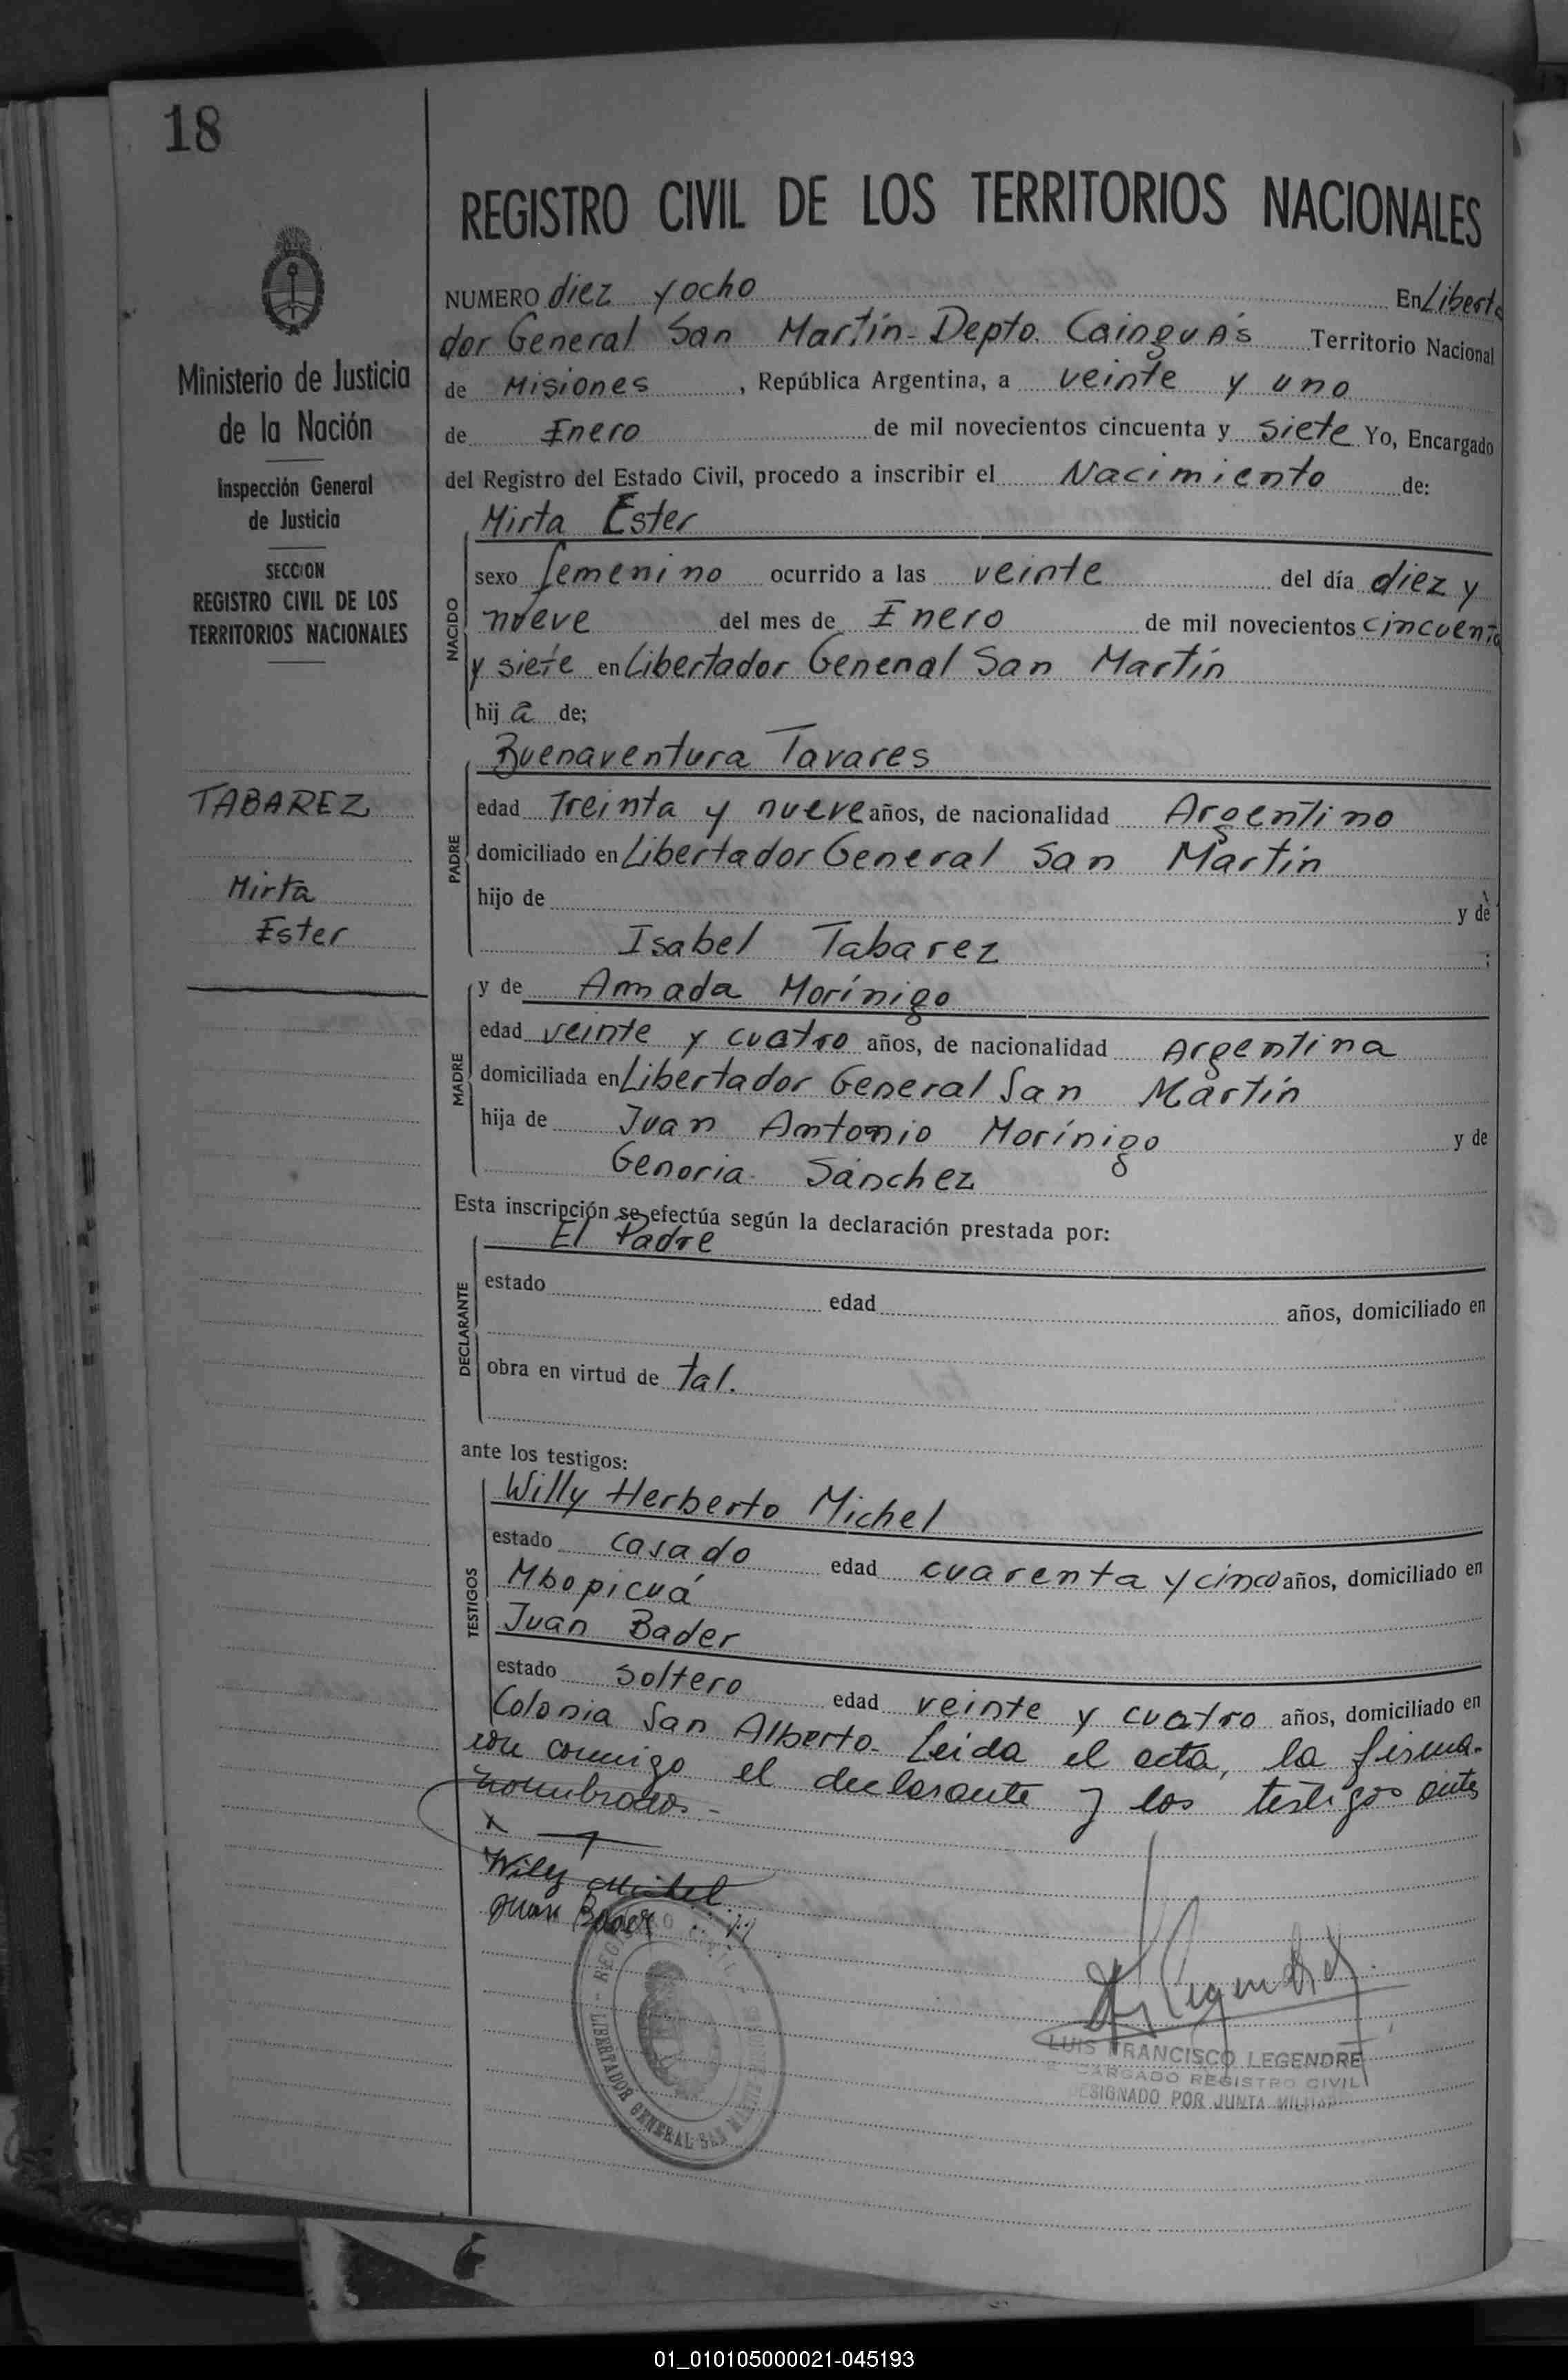 18
REGISTRO CIVIL DE LOS TERRITORIOS NACIONALES
Ministerio de Justicia
de la Nación
Inspección General
de Justicia
SECCION
REGISTRO CIVIL DE LOS
TERRITORIOS NACIONALES
TABAREZ
Mirta
Ester
NUMERO diez y ocho En Liberta
dor General San Martín - Depto. Cainguás Territorio Nacional
de Misiones, República Argentina, a veinte y uno
de Enero de mil novecientos cincuenta y siete Yo, Encargado
del Registro del Estado Civil, procedo a inscribir el Nacimiento de:
Mirta Ester
NACIDO
sexo femenino ocurrido a las veinte del día diez y
nueve del mes de Enero de mil novecientos cincuenta
y siete en Libertador General San Martín
hij a de;
Buenaventura Tavares
PADRE
edad Treinta y nueve años, de nacionalidad Argentino
domiciliado en Libertador General San Martín
hijo de y de
Isabel Tabarez ;
y de Amada Morínigo
MADRE
edad veinte y cuatro años, de nacionalidad Argentina
domiciliada en Libertador General San Martín
hija de Juan Antonio Morínigo y de
Genoria Sánchez
Esta inscripción se efectúa según la declaración prestada por:
El Padre
DECLARANTE
estado edad años, domiciliado en
obra en virtud de tal.
ante los testigos:
Willy Herberto Michel
TESTIGOS
estado casado edad cuarenta y cinco años, domiciliado en
Mbopicuá
Juan Bader
estado soltero edad veinte y cuatro años, domiciliado en
Colonia San Alberto - Leida el acta, la firma-
ron conmigo el declarante y los testigos ante
nombrados -
x
Willy Michel
Juan Bader
REGISTRO CIVIL
LIBERTADOR GENERAL SAN MARTIN
LUIS FRANCISCO LEGENDRE
ENCARGADO REGISTRO CIVIL
DESIGNADO POR JUNTA MILITAR
01_010105000021-045193